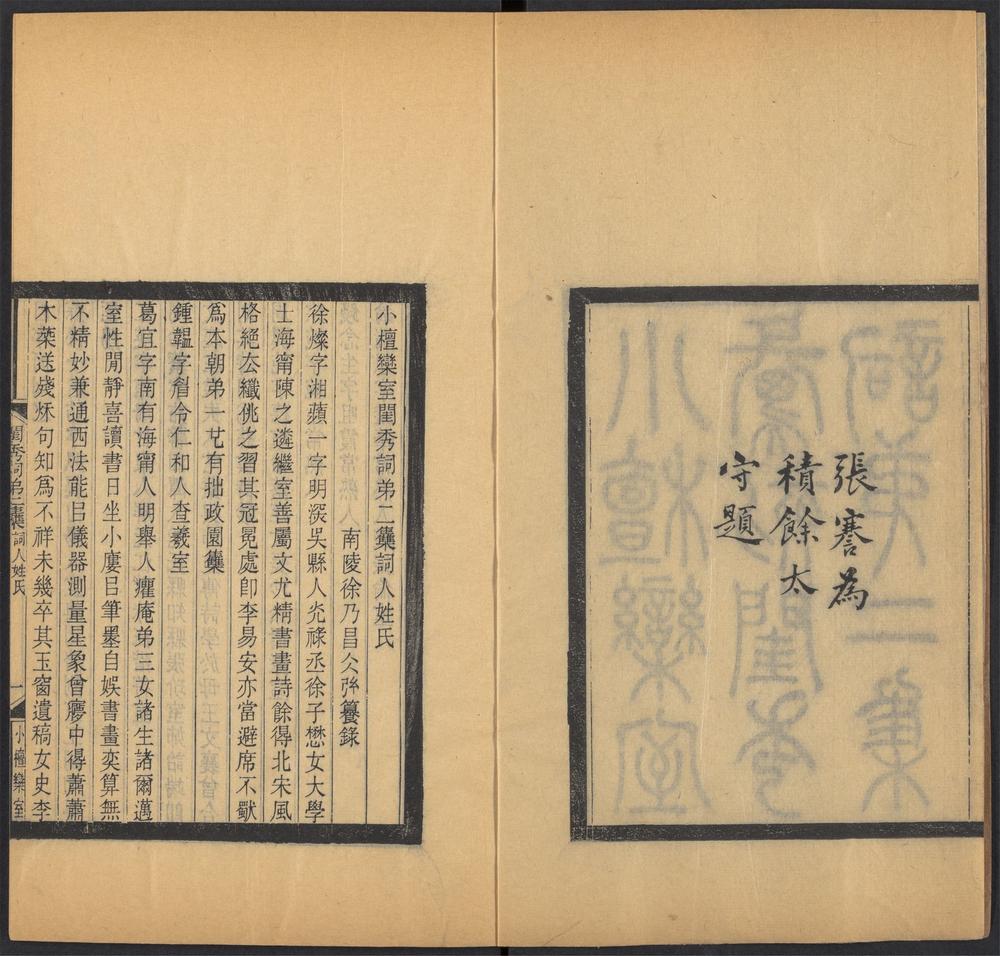 張謇為
積餘太
守題
小檀欒室閨秀詞弟二集詞人姓氏
南陵徐乃昌仌弜籑錄
徐燦字湘蘋一字明深吳縣人光祿丞徐子懋女大學
士海甯陳之遴繼室善屬文尤精書畫詩餘得北宋風
格絕厺纖佻之習其冠冕處卽李易安亦當避席不獸
爲本朝弟一也有拙政園集
鍾韞字眉令仁和人查羲室
葛宜字南有海甯人明舉人癯庵弟三女諸生諸爾邁
室性閒靜喜讀書日坐小廔㠯筆墨自娛書畫奕算無
不精妙兼通西法能㠯儀器測量星象曾㝱中得蕭蕭
木葉送殘秌句知爲不祥未幾卒其玉窗遺稿女史李
閨秀詞弟二集詞人姓氏
一
小檀欒室